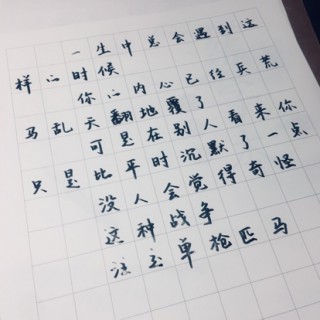 一生中总会遇到这
样的时候
你的内心已经兵荒
马乱天翻地覆了
可是在别人看来你
只是比平时沉默了一点
没人会觉得奇怪
这种战争
注定单枪匹马